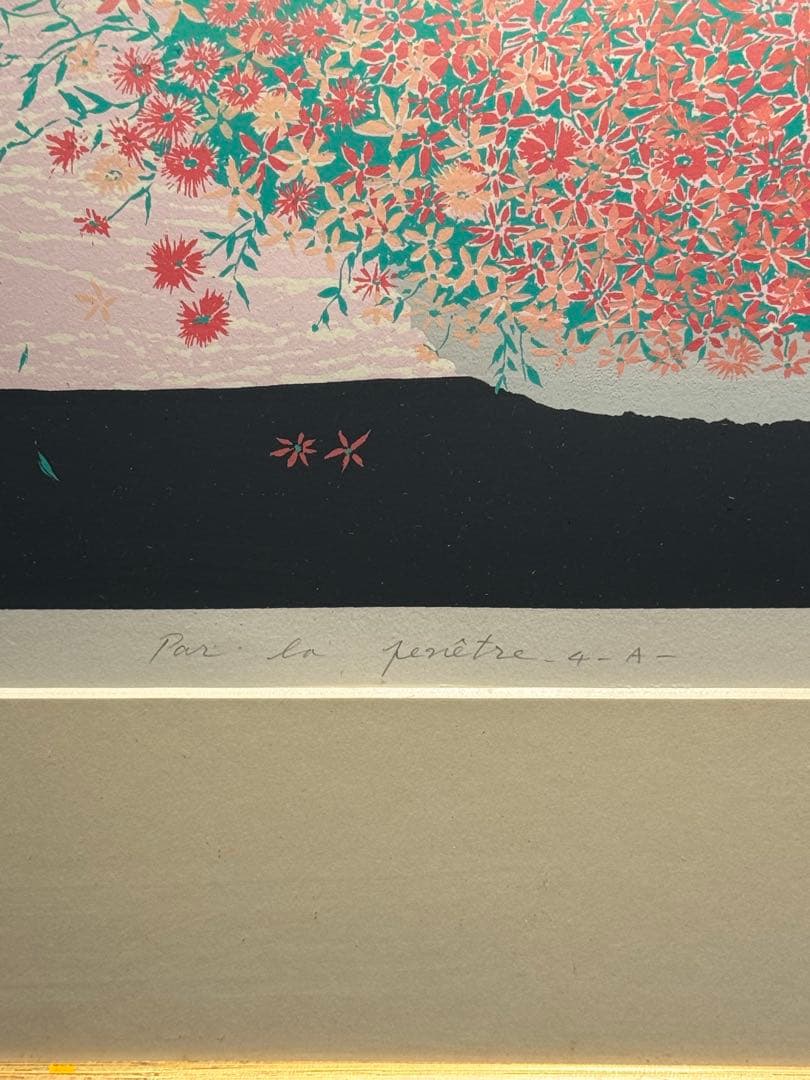 Par la fenêtre - 4 - A -